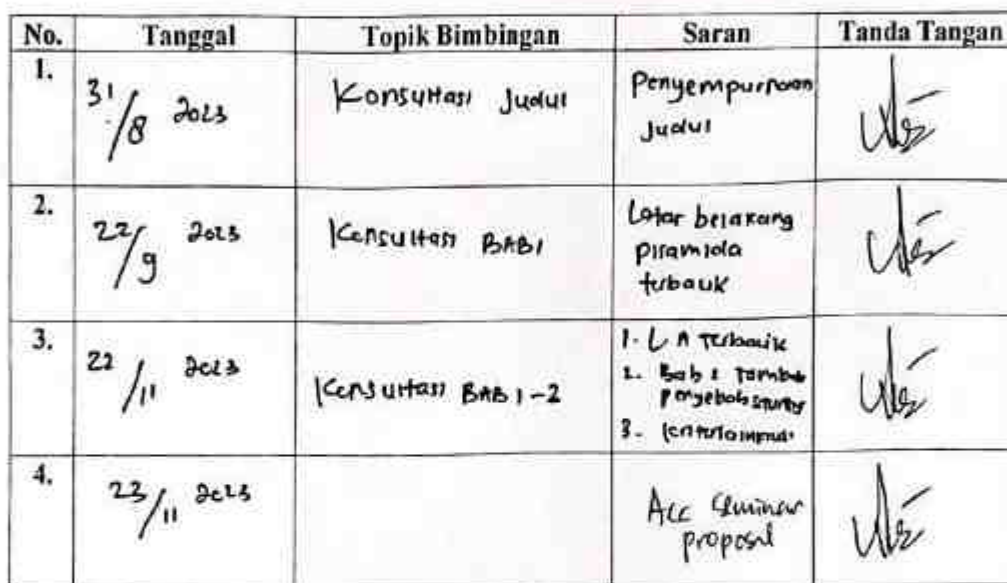 No. Tanggal Topik Bimbingan Saran Tanda Tangan
1. 31/8 2023 Konsultasi Judul Penyempurnaan
Judul
2. 22/9 2023 Konsultasi BAB 1 Latar belakang
piramida
terbalik
3. 22/11 2023 Konsultasi BAB 1-2 1. L A Terbalik
2. Bab 2 Tambah
penyebab stunting
3.
4. 23/11 2023 Acc Seminar
proposal